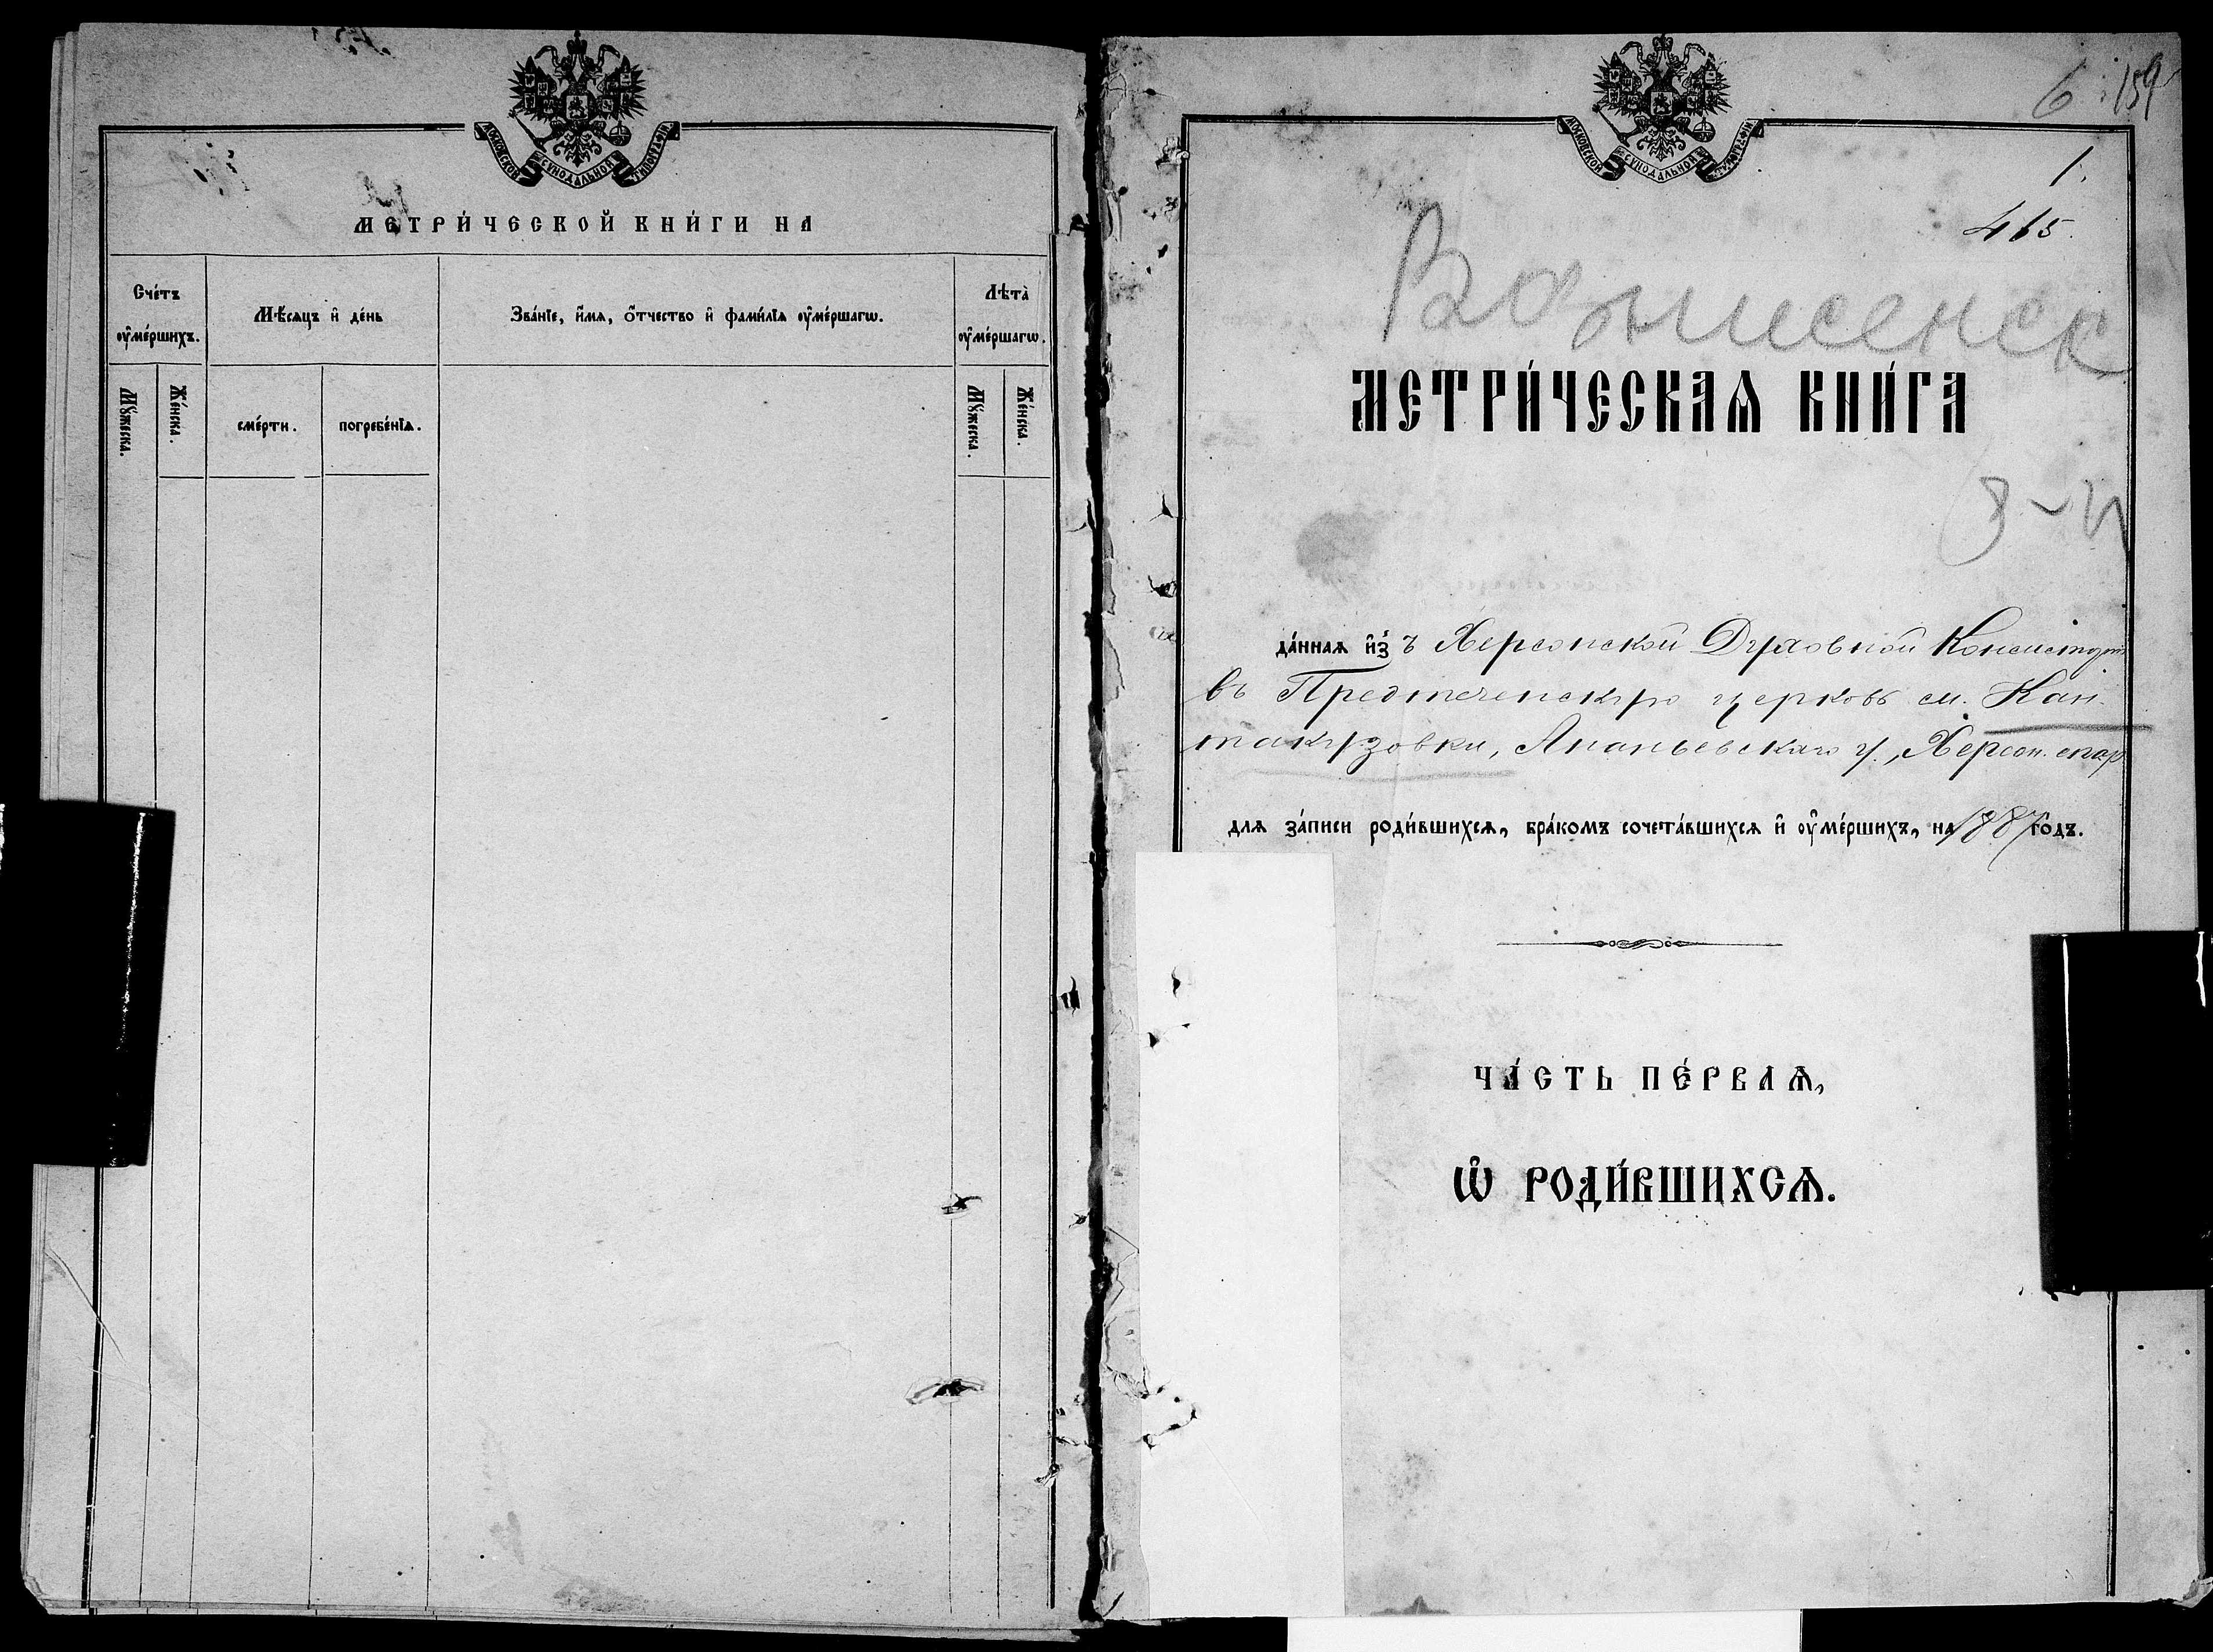 МОСКОВСКОЙ СѴНОДАЛЬНОЙ ТИПОГРАФІИ
МЕТРИ́ЧЕСКОЙ КНИ́ГИ НА
Сче́тъ оу҆ме́ршихъ.
Мѣ́сяцъ и҆ де́нь
Зва́нїе, и҆́мя, ѻ҆́тчество и҆ фами́лїя оу҆ме́ршагѡ.
Лѣта̀ оу҆ме́ршагѡ.
Мꙋ́жеска.
Же́нска.
сме́рти.
погребе́нїѧ.
Мꙋ́жеска.
Же́нска.
МОСКОВСКОЙ СѴНОДАЛЬНОЙ ТИПОГРАФІИ
6 159
1.
415.
Вознесенск
МЕТРИ́ЧЕСКАѦ КНИ́ГА
да́нная и҆з̾ ъ Херсонской Духовной Консисторіи
въ Предтеченскую церковь см. Кан-
такузовки, Ананьевскаго у., Херсон. епар
для за́писи роди́вшихся, бра́комъ сочета́вшихся и҆ оу҆ме́ршихъ, на 1887 годъ.
ЧА́СТЬ ПЕ́РВАѦ,
Ѡ҆ РОДИ́ВШИХСѦ.